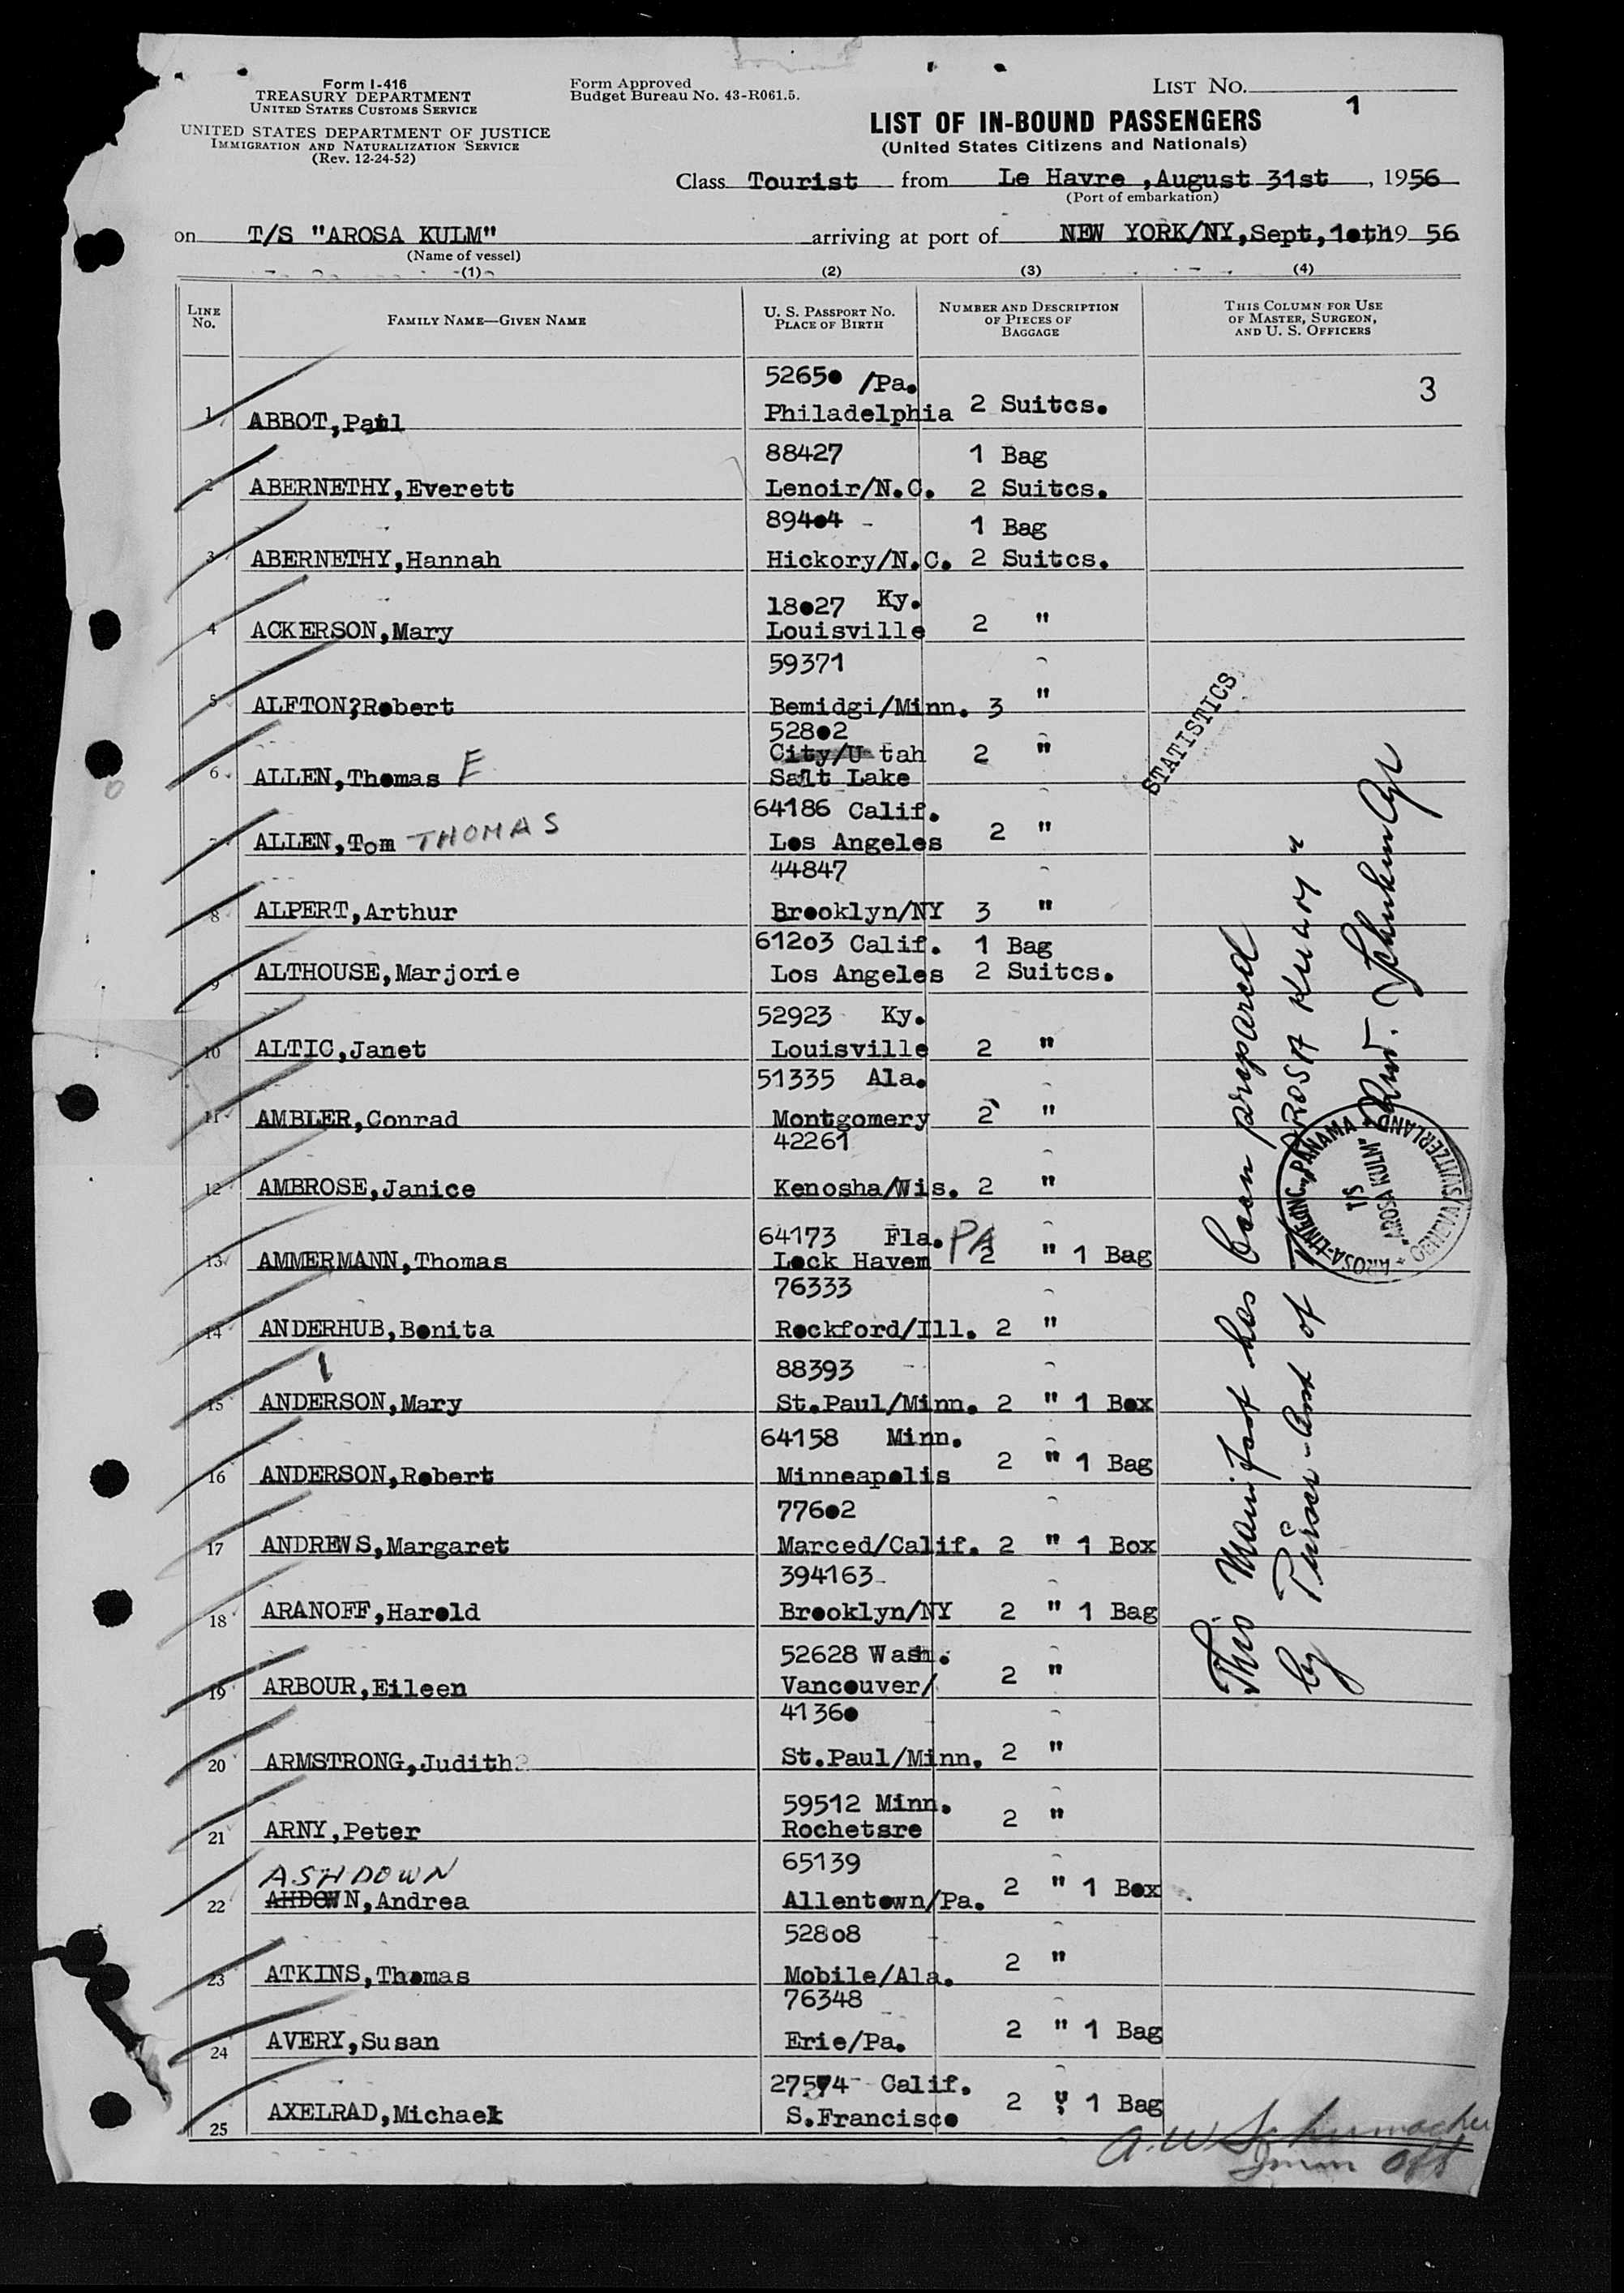 Form I-416
TREASURY DEPARTMENT
UNITED STATES CUSTOMS SERVICE
UNITED STATES DEPARTMENT OF JUSTICE
IMMIGRATION AND NATURALIZATION SERVICE
(Rev. 12-24-52)
Form Approved
Budget Bureau No. 43-R061.5.
LIST NO.
1
LIST OF IN-BOUND PASSENGERS
(United States Citizens and Nationals)
Class Tourist from Le Havre ,August 31st , 1956
(Port of embarkation)
on T/S "AROSA KULM" arriving at port of NEW YORK/NY,Sept,10th19 56
(Name of vessel)
(1) (2) (3) (4)
LINE No. FAMILY NAME—GIVEN NAME U. S. PASSPORT NO. PLACE OF BIRTH NUMBER AND DESCRIPTION OF PIECES OF BAGGAGE THIS COLUMN FOR USE OF MASTER, SURGEON, AND U. S. OFFICERS
3
52650 /Pa.
1 ABBOT,Paul Philadelphia 2 Suitcs.
88427 1 Bag
2 ABERNETHY,Everett Lenoir/N.C. 2 Suitcs.
89404 - 1 Bag
3 ABERNETHY,Hannah Hickory/N.C. 2 Suitcs.
18027 Ky.
4 ACKERSON,Mary Louisville 2 "
59371
5 ALFTON?Robert Bemidgi/Minn. 3 "
52802
City/U tah 2 "
6 ALLEN,Thomas E Salt Lake
64186 Calif.
7 ALLEN,Tom THOMAS Los Angeles 2 "
44847
8 ALPERT,Arthur Brooklyn/NY 3 "
61203 Calif. 1 Bag
9 ALTHOUSE,Marjorie Los Angeles 2 Suitcs.
52923 Ky.
10 ALTIC,Janet Louisville 2 "
51335 Ala.
11 AMBLER,Conrad Montgomery 2 "
42261
12 AMBROSE,Janice Kenosha/Wis. 2 "
64173 Fla. PA
13 AMMERMANN,Thomas Lock Haven 2 " 1 Bag
76333
14 ANDERHUB,Bonita Rockford/Ill. 2 "
88393
15 ANDERSON,Mary St.Paul/Minn. 2 " 1 Box
64158 Minn.
16 ANDERSON,Robert Minneapolis 2 " 1 Bag
77602
17 ANDREWS,Margaret Marced/Calif. 2 " 1 Box
394163
18 ARANOFF,Harold Brooklyn/NY 2 " 1 Bag
52628 Wash.
19 ARBOUR,Eileen Vancouver/ 2 "
41360
20 ARMSTRONG,Judith St.Paul/Minn. 2 "
59512 Minn.
21 ARNY,Peter Rochetsre 2 "
ASHDOWN 65139
22 AHDOWN,Andrea Allentown/Pa. 2 " 1 Box
52808
23 ATKINS,Thomas Mobile/Ala. 2 "
76348
24 AVERY,Susan Erie/Pa. 2 " 1 Bag
27574 Calif.
25 AXELRAD,Michael S.Francisco 2 " 1 Bag
STATISTICS
This Manifest has been prepared
by Purser of T/S "AROSA KULM"
AROSA-LINE INC., PANAMA
T/S
"AROSA KULM"
GENEVA/SWITZERLAND
A. W. Schumacher
Imm Off